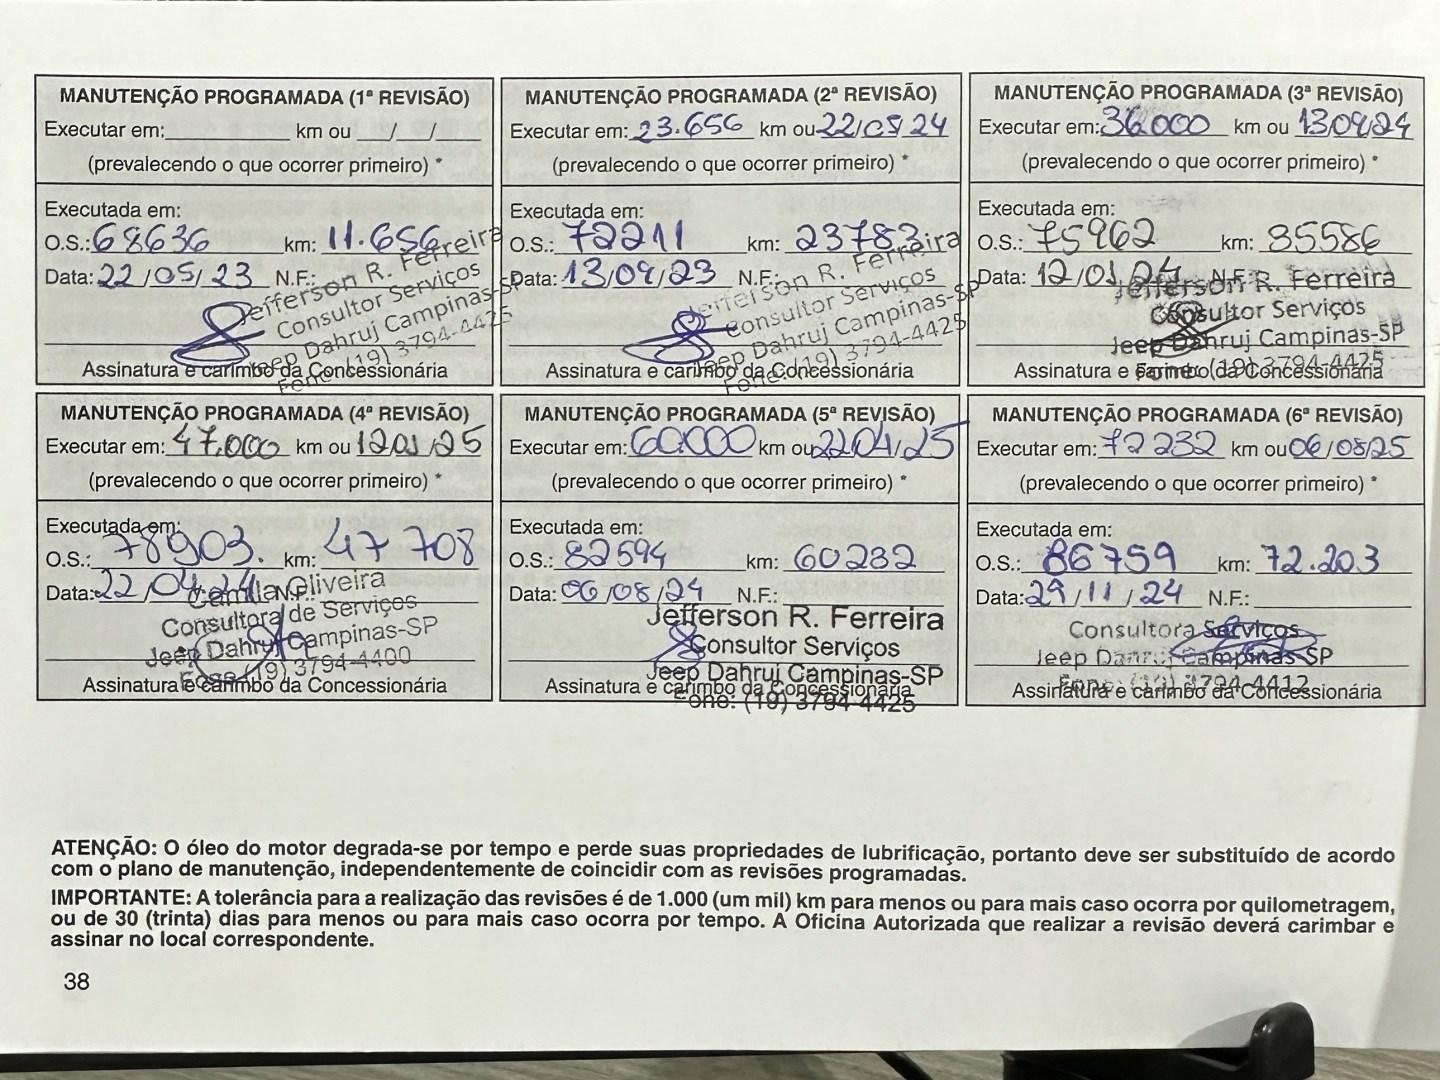 MANUTENÇÃO PROGRAMADA (1ª REVISÃO)
Executar em: km ou / /
(prevalecendo o que ocorrer primeiro) *
Executada em:
O.S.: 68636 km: 11.656
Data: 22/05/23 N.F.:
Jefferson R. Ferreira
Consultor Serviços
Jeep Dahruj Campinas-SP
Fone: (19) 3794-4425
Assinatura e carimbo da Concessionária
MANUTENÇÃO PROGRAMADA (2ª REVISÃO)
Executar em: 23.656 km ou 22/05/24
(prevalecendo o que ocorrer primeiro) *
Executada em:
O.S.: 72211 km: 23783
Data: 13/09/23 N.F.:
Jefferson R. Ferreira
Consultor Serviços
Jeep Dahruj Campinas-SP
Fone: (19) 3794-4425
Assinatura e carimbo da Concessionária
MANUTENÇÃO PROGRAMADA (3ª REVISÃO)
Executar em: 36000 km ou 13/09/24
(prevalecendo o que ocorrer primeiro) *
Executada em:
O.S.: 75962 km: 35586
Data: 12/01/24 N.F.:
Jefferson R. Ferreira
Consultor Serviços
Jeep Dahruj Campinas-SP
Fone: (19) 3794-4425
Assinatura e carimbo da Concessionária
MANUTENÇÃO PROGRAMADA (4ª REVISÃO)
Executar em: 47.000 km ou 12/01/25
(prevalecendo o que ocorrer primeiro) *
Executada em:
O.S.: 78903. km: 47 708
Data: 22/04/24 N.F.:
Camila Oliveira
Consultora de Serviços
Jeep Dahruj Campinas-SP
Fone: (19) 3794-4400
Assinatura e carimbo da Concessionária
MANUTENÇÃO PROGRAMADA (5ª REVISÃO)
Executar em: 60.000 km ou 22/04/25
(prevalecendo o que ocorrer primeiro) *
Executada em:
O.S.: 82594 km: 60282
Data: 06/08/24 N.F.:
Jefferson R. Ferreira
Consultor Serviços
Jeep Dahruj Campinas-SP
Fone: (19) 3794-4425
Assinatura e carimbo da Concessionária
MANUTENÇÃO PROGRAMADA (6ª REVISÃO)
Executar em: 72 232 km ou 06/08/25
(prevalecendo o que ocorrer primeiro) *
Executada em:
O.S.: 86759 km: 72.203
Data: 29/11/24 N.F.:
Consultora Serviços
Jeep Dahruj Campinas-SP
Fone: (19) 3794-4412
Assinatura e carimbo da Concessionária
ATENÇÃO: O óleo do motor degrada-se por tempo e perde suas propriedades de lubrificação, portanto deve ser substituído de acordo
com o plano de manutenção, independentemente de coincidir com as revisões programadas.
IMPORTANTE: A tolerância para a realização das revisões é de 1.000 (um mil) km para menos ou para mais caso ocorra por quilometragem,
ou de 30 (trinta) dias para menos ou para mais caso ocorra por tempo. A Oficina Autorizada que realizar a revisão deverá carimbar e
assinar no local correspondente.
38